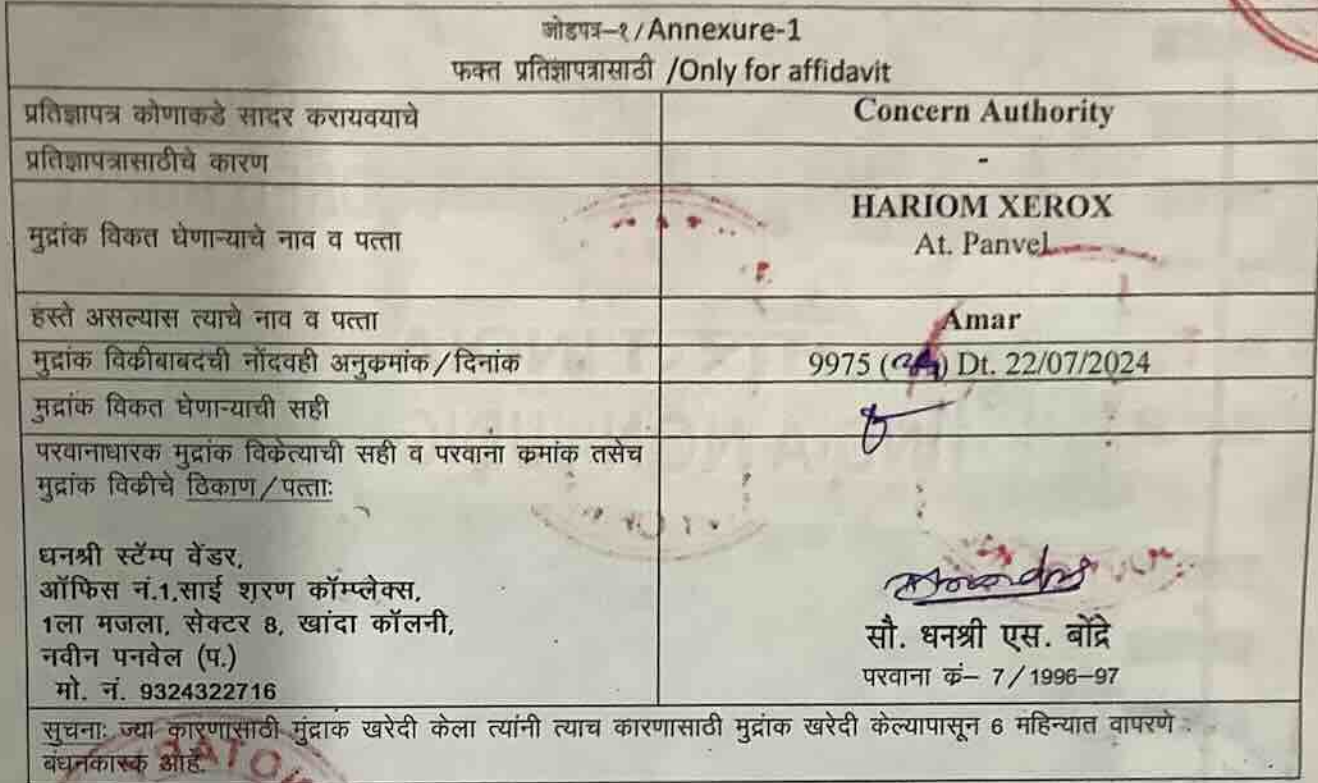 जोडपत्र–१/Annexure-1
फक्त प्रतिज्ञापत्रासाठी /Only for affidavit
प्रतिज्ञापत्र कोणाकडे सादर करायवयाचे
Concern Authority
प्रतिज्ञापत्रासाठीचे कारण
-
मुद्रांक विकत घेणाऱ्याचे नाव व पत्ता
HARIOM XEROX
At. Panvel
हस्ते असल्यास त्याचे नाव व पत्ता
Amar
मुद्रांक विकीबाबदची नोंदवही अनुकमांक/दिनांक
9975 ( ) Dt. 22/07/2024
मुद्रांक विकत घेणाऱ्याची सही
परवानाधारक मुद्रांक विकेत्याची सही व परवाना कमांक तसेच
मुद्रांक विकीचे ठिकाण/पत्ताः
धनश्री स्टॅम्प वेंडर,
ऑफिस नं.1,साई शरण कॉम्प्लेक्स,
1ला मजला, सेक्टर 8, खांदा कॉलनी,
नवीन पनवेल (प.)
मो. नं. 9324322716
सौ. धनश्री एस. बोंद्रे
परवाना कं– 7/1996–97
सुचनाः ज्या कारणासाठी मुंद्राक खरेदी केला त्यांनी त्याच कारणासाठी मुद्रांक खरेदी केल्यापासून 6 महिन्यात वापरणे
बंधनकारक आहे.